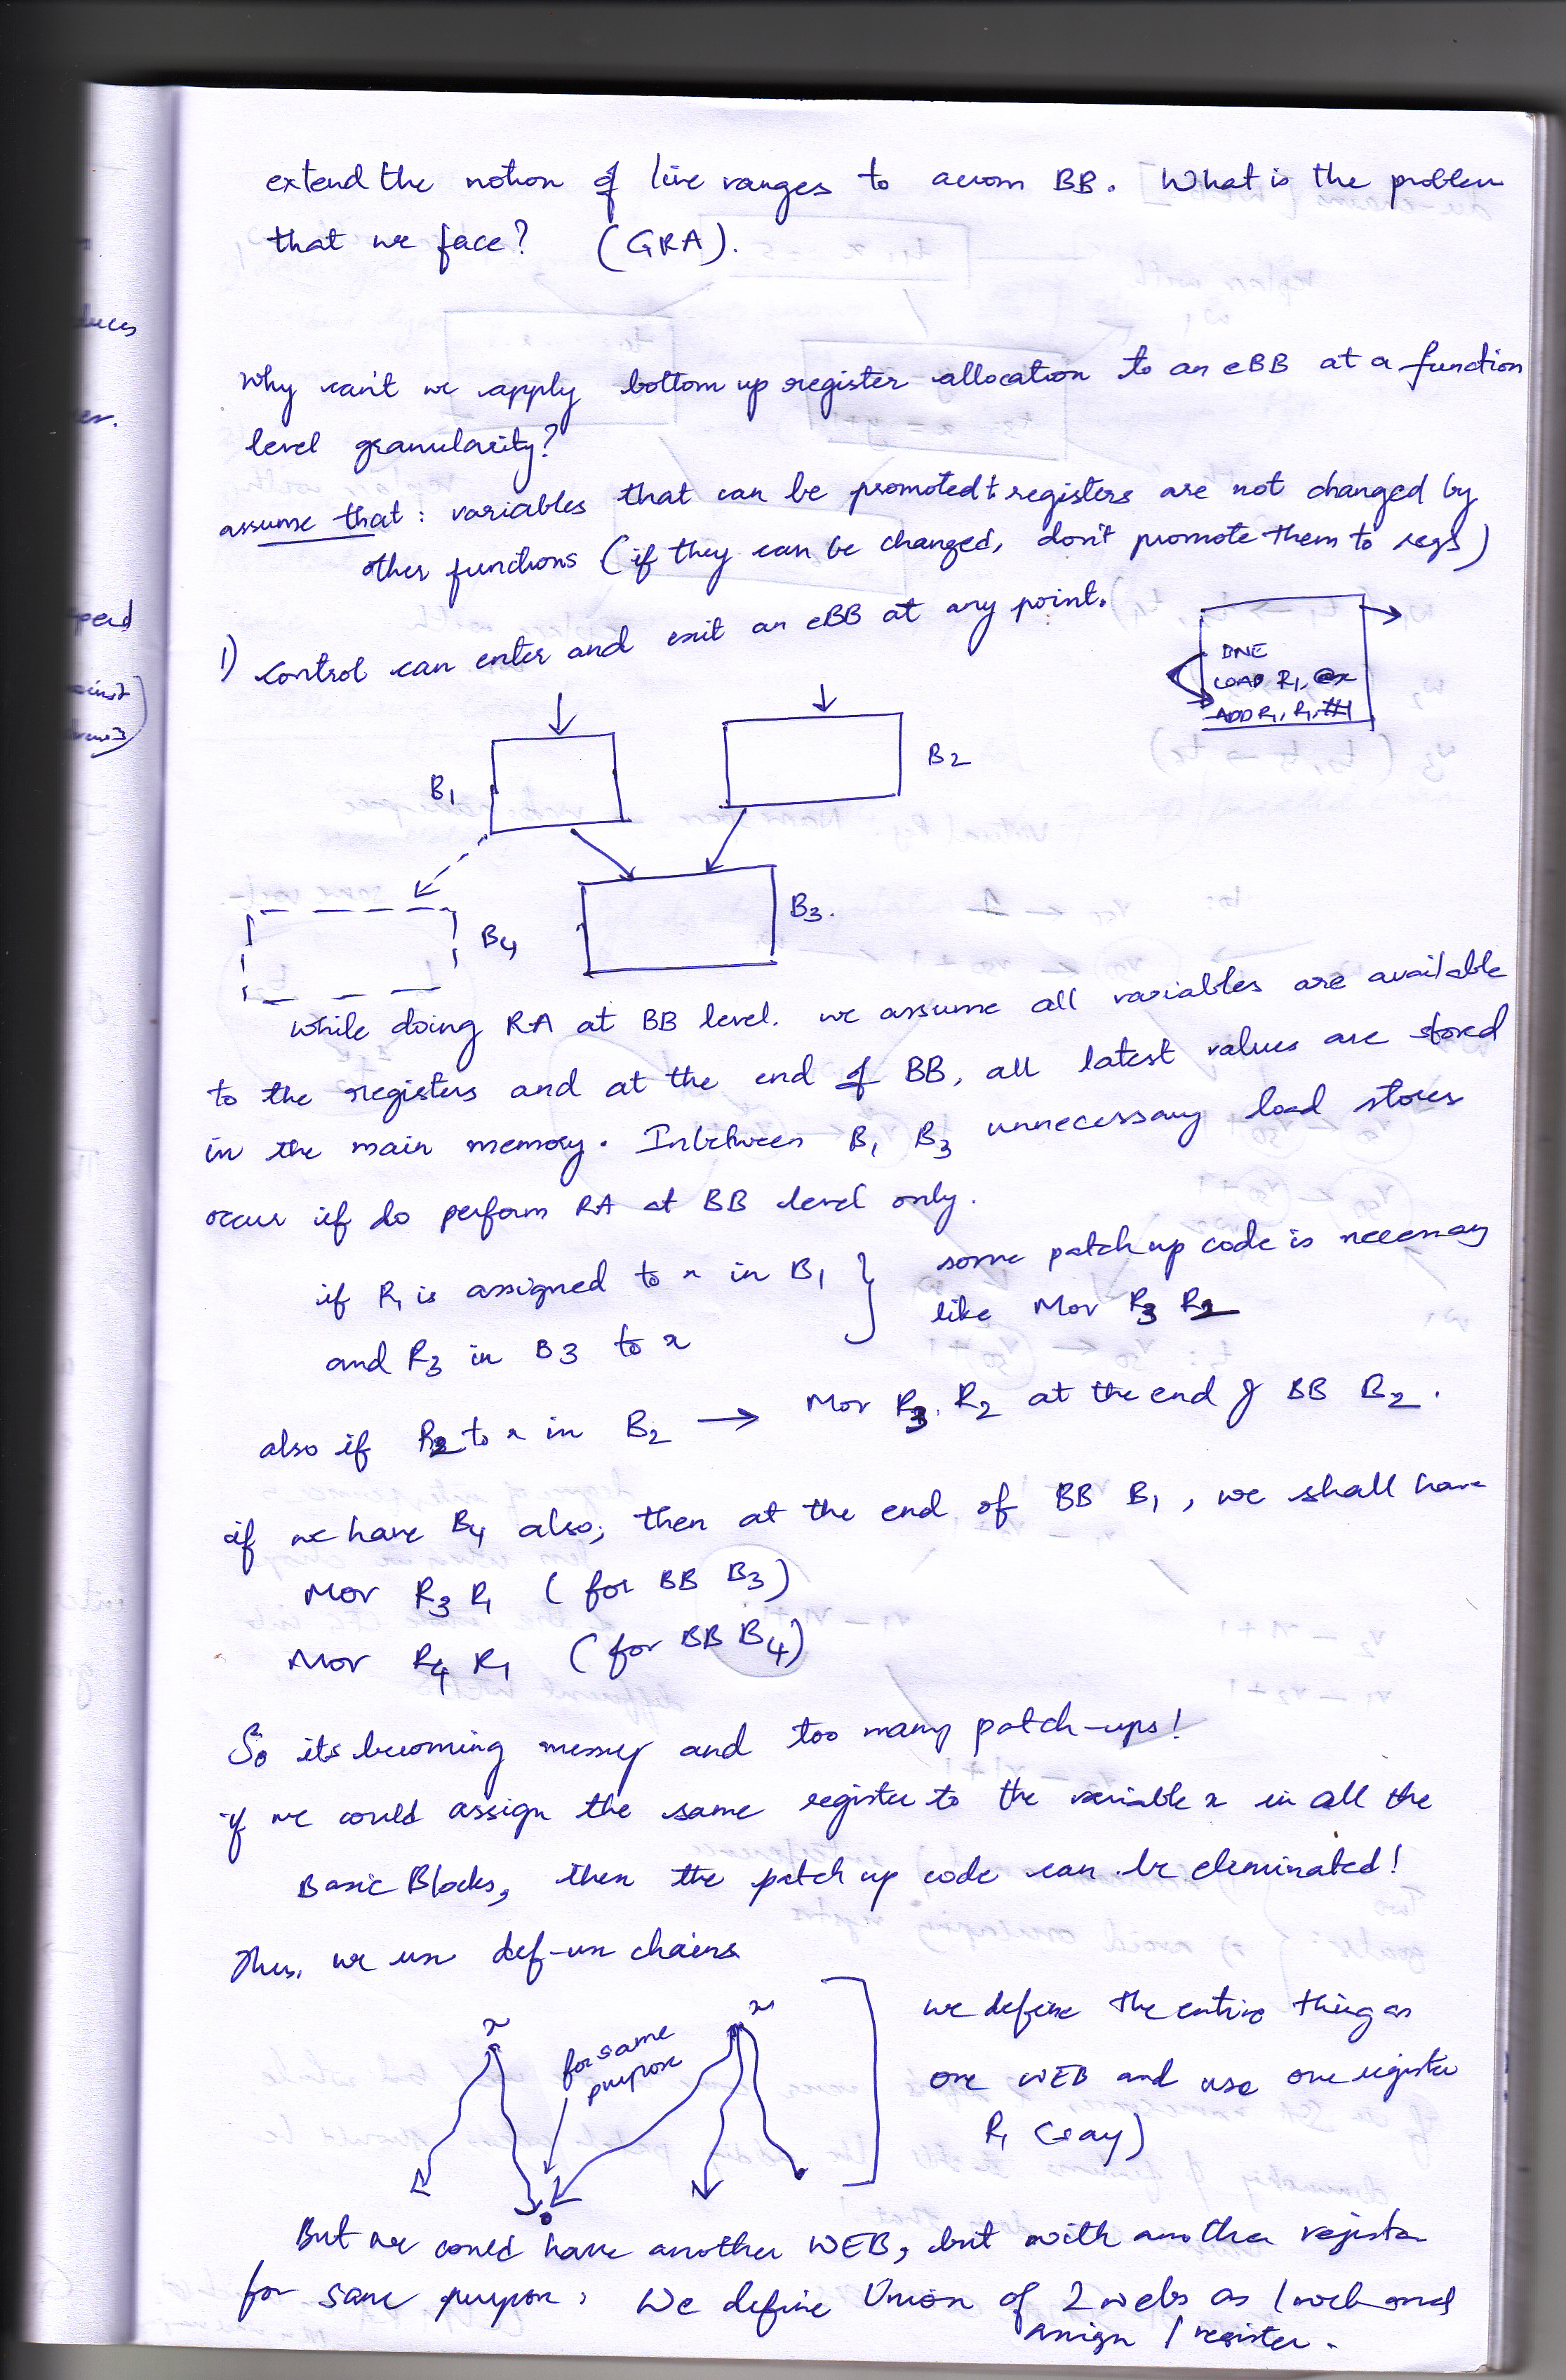 extend the notion of live ranges to across BB. What is the problem
that we face? (GRA).
Why can't we apply bottom up register allocation to an eBB at a function
level granularity?
assume that: variables that can be promoted to registers are not changed by
other functions (if they can be changed, don't promote them to regs)
1) control can enter and exit an eBB at any point.
BNE
LOAD R1, @x
ADD R1, R1, #1
B1
B2
B3.
B4
while doing RA at BB level. we assume all variables are available
to the registers and at the end of BB, all latest values are stored
in the main memory. Inbetween B1 B3 unnecessary load stores
occur if do perform RA at BB level only.
if R1 is assigned to x in B1 } some patch up code is necessary
and R3 in B3 to x like Mov R3 R2
also if R2 to x in B2 → Mov R3, R2 at the end of BB B2.
if we have B4 also, then at the end of BB B1, we shall have
Mov R3 R1 (for BB B3)
Mov R4 R1 (for BB B4)
So its becoming messy and too many patch-ups!
if we could assign the same register to the variable x in all the
Basic Blocks, then the patch up code can be eliminated!
Thus, we use def-use chains
x
x
for same
purpose
we define the entire thing as
one WEB and use one register
R1 (say)
But we could have another WEB, but with another register
for same purpose, We define Union of 2 webs as 1 web and
assign 1 register.
uces
er.
pend